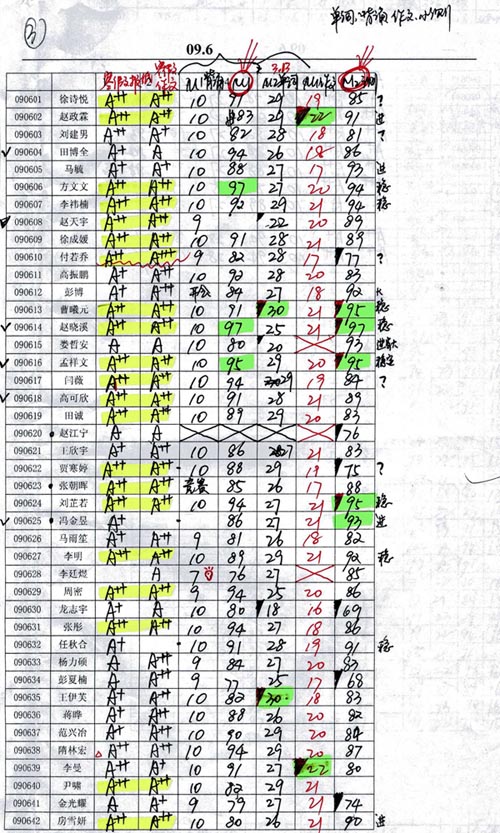 ③
单词、背诵、作文、小练习
09.6
090601 徐诗悦 A++ A++ 10 91 29 19 85 ?
090602 赵政霖 A++ A++ 10 83 29 22 91 进
090603 刘建男 A++ A++ 10 82 28 18 81 ?
090604 田博全 A+ A 10 94 26 18 86
090605 马毓 A+ A+ 10 88 27 17 93 进
090606 方文文 A++ A++ 10 97 27 20 94 稳
090607 李祎楠 A++ A++ 10 92 29 21 94 稳
090608 赵天宇 A++ A++ 9 22 20 89
090609 徐成媛 A++ A++ 10 91 28 21 89
090610 付若乔 A++ A++ 9 82 28 17 77 ?
090611 高振鹏 A+ A++ 10 92 28 20 83
090612 彭博 A+ A+ 84 27 18 92
090613 曹曦元 A++ A++ 10 91 30 21 95 稳
090614 赵晓溪 A++ A++ 10 97 25 21 97 稳
090615 娄哲安 A A 10 80 20 93
090616 孟祥文 A++ A++ 10 95 29 20 95 稳
090617 闫薇 A++ A++ 10 94 29 19 84 ?
090618 高可欣 A++ A++ 10 91 28 21 89
090619 田诚 A++ A++ 10 89 29 20 83
090620 赵江宁 A A 76
090621 王欣宇 A+ A++ 10 86 27 21 83
090622 贾寒婷 A++ A++ 10 88 29 19 75 ?
090623 张朝晖 A++ A++ 竞赛 85 26 17 88
090624 刘芷若 A++ A++ 10 94 27 21 95 稳
090625 冯金昱 A+ 86 27 21 93 进
090626 马雨笙 A+ A+ 9 81 26 18 82
090627 李明 A++ A++ 10 89 29 21 92 稳
090628 李廷煜 A 7 76 27 85
090629 周密 A++ A++ 9 94 25 20 86
090630 龙志宇 A+ A 10 80 18 16 69
090631 张彤 A++ A++ 10 94 27 18 86
090632 任秋合 A+ A+ 10 91 28 19 91 稳
090633 杨力硕 A A++ 9 84 27 20 83
090634 彭夏楠 A A++ 9 77 25 17 68
090635 王伊芙 A+ A++ 10 82 30 18 83
090636 蒋晔 A+ A++ 10 88 26 20 82
090637 范兴冶 A+ A++ 10 90 29 20 84
090638 隋林宏 A+ A++ 10 94 29 20 87
090639 李曼 A+ A++ 10 91 27 22 80
090640 尹啸 A++ A++ 10 82 29 21
090641 金光耀 A A+ 9 79 27 21 74
090642 房雪妍 A++ A++ 10 80 26 21 90 进